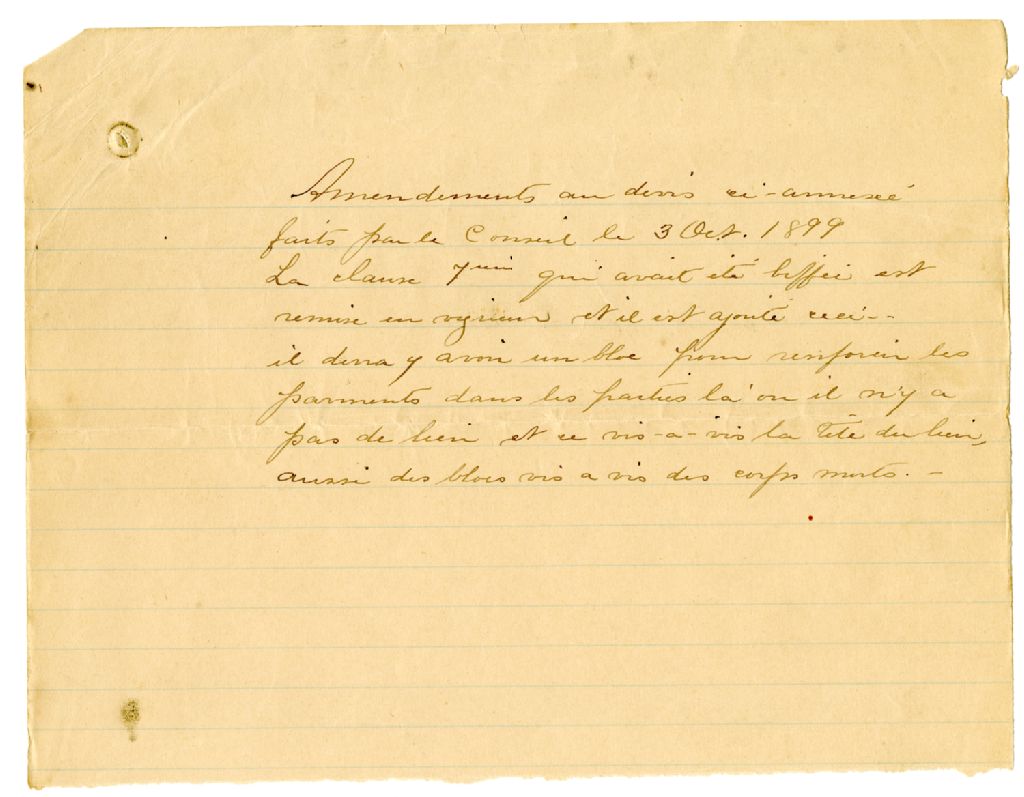 Amendements au devis ci-annexé
faits par le Conseil le 3 Oct. 1899
La clause 7me qui avait été biffée est
remise en vigueur et il est ajouté ceci--
il devra y avoir un bloc pour renforcir les
parments dans les parties là où il n'y a
pas de lien et ce vis-a-vis la tête du lien,
aussi des blocs vis a vis des corps morts. -